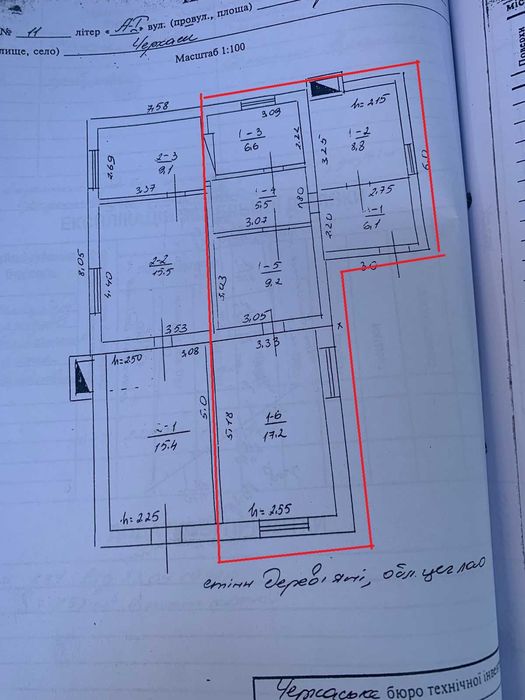 № 11 літер « А-І » вул. (провул., площа)
лище, село) Черкаси
Масштаб 1:100
7.58
3.09
h=2.15
2-3
9,1
2.69
1-3
6.6
2.22
3.25
1-2
8,8
6.0
3.37
1-4
5.5
1.80
2.75
1-1
6,1
2.20
3.07
8.05
4.40
2-2
15.5
3.03
1-5
9.2
3.0
3.53
3.05
3.33
х
h=2.50
3,08
5.0
2-1
15.4
5.18
1-6
17.2
h=2.25
h=2.55
стіни дерев'яні, обл. цеглою
Черкаське бюро технічної інве